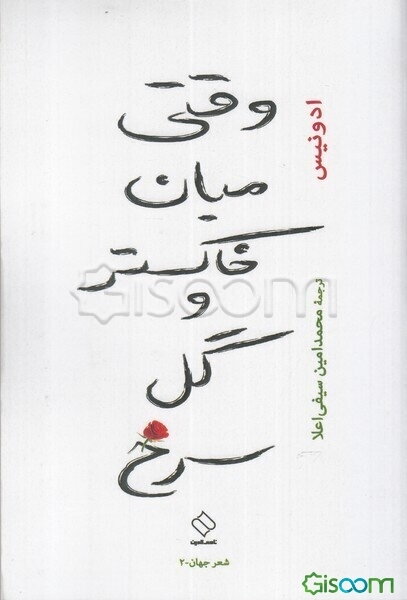 ادونیس
وقتی
میان
خاکستر
و
گل
سرخ
ترجمهٔ محمدامین سیفی‌اعلا
شعر جهان-۲
Gisoom
Gisoom.com